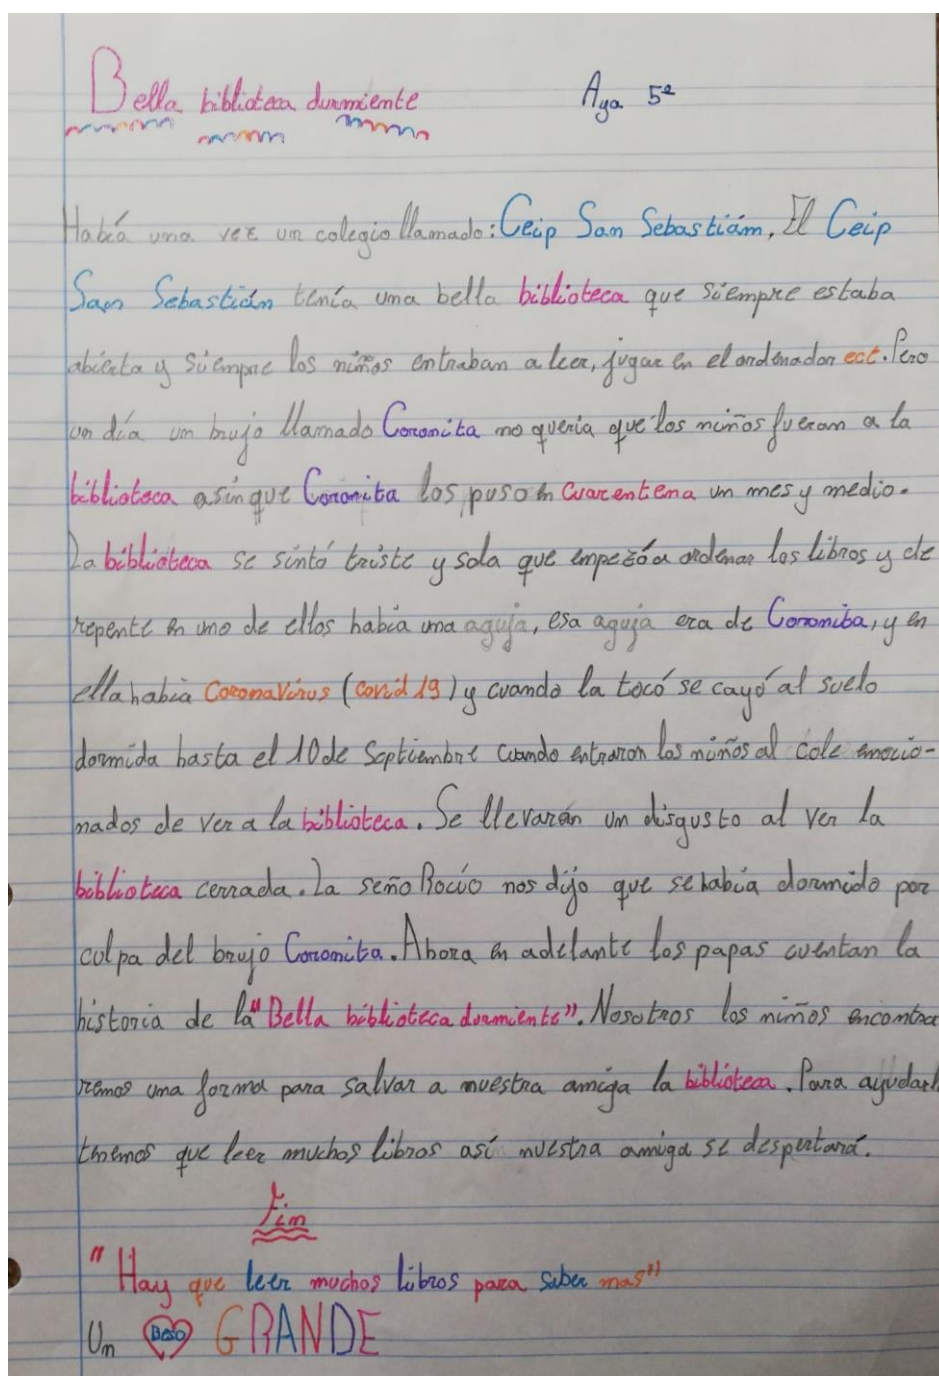 Bella biblioteca durmiente Aya 5º
Había una vez un colegio llamado: Ceip San Sebastián. El Ceip
San Sebastián tenía una bella biblioteca que siempre estaba
abierta y siempre los niños entraban a leer, jugar en el ordenador ect. Pero
un día un brujo llamado Coronita no queria que los niños fueran a la
biblioteca asinque Coronita los puso en cuarentena un mes y medio.
La biblioteca se sintó triste y sola que empezó a ordenar los libros y de
repente en uno de ellos había una aguja, esa aguja era de Coronita, y en
ella habia CoronaVirus (covid 19) y cuando la tocó se cayó al suelo
dormida hasta el 10 de Septiembre cuando entraron los niños al cole emocio-
nados de ver a la biblioteca. Se llevarán un disgusto al ver la
biblioteca cerrada. La seño Rocío nos dijo que se habia dormido por
culpa del brujo Coronita. Ahora en adelante los papas cuentan la
historia de la "Bella biblioteca durmiente". Nosotros los niños encontra
remos una forma para salvar a nuestra amiga la biblioteca. Para ayudarl
tenemos que leer muchos libros así nuestra amiga se despertará.
Fin
"Hay que leer muchos libros para saber mas"
Un Beso GRANDE